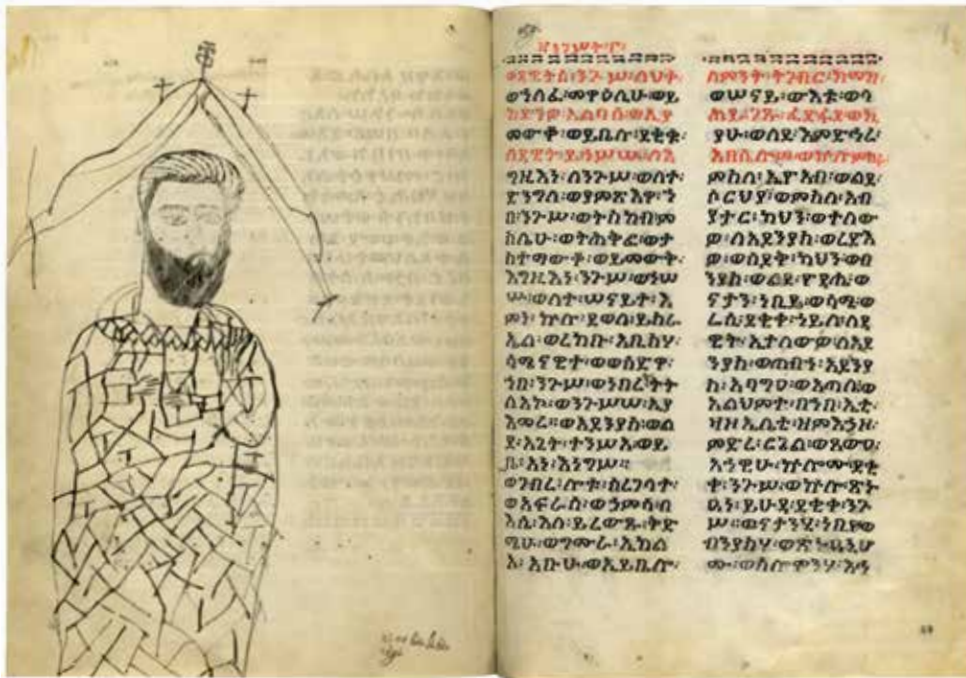 ወዳዊትሰ፡ንጉሥ፡ልህቀ፡
ወኀለፈ፡መዋዕሊሁ፡ወይ
ከድንዎ፡አልባሰ፡ወኢያ
መውቆ፡ወይቤሉ፡ደቂቁ፡
ለዳዊት፡ይኅሥሡ፡ለእ
ግዚእነ፡ለንጉሥ፡ወለተ፡
ድንግለ፡ወያምጽእዋ፡ኀ
በ፡ንጉሥ፡ወትስክብ፡ም
ስሌሁ፡ወትሕቅፎ፡ወታ
ስተማውቆ፡ወይመውቅ፡
እግዚእነ፡ንጉሥ፡ወኀሠ
ሡ፡ወለተ፡ሠናይተ፡እ
ምነ፡ኵሉ፡ደወለ፡ይስራ
ኤል፡ወረከቡ፡አቢስሃ፡
ሳሜናዊተ፡ወወሰድዋ፡
ኀበ፡ንጉሥ፡ወነበረት፡ት
ለአኮ፡ወንጉሥሠ፡ኢያ
እመረ።ወአዶንያስ፡ወል
ደ፡አጊት፡ተንሥአ፡ወይ
ቤ፡አነ፡እነግሥ።
ወገብረ፡ሎቱ፡ሰረገላተ፡
ወአፍራሰ፡ወኃምሳ፡ብ
እሴ፡እለ፡ይረውጹ፡ቅድ
ሜሁ፡ወግሙራ፡ኢከል
አ፡አቡሁ፡ወኢይቤሎ፡
ለምንት፡ትገብር፡ከመዝ፡
ወሠናይ፡ውእቱ፡ወላ
ሕይ፡ገጹ፡ፈድፋደ፡ወኪ
ያሁ፡ወለደ፡እምድኅረ፡
አቤሴሎም፡ወኮነ፡ምክሩ፡
ምስለ፡ኢዮአብ፡ወልደ፡
ሶርህያ፡ወምስለ፡አብ
ያታር፡ካህን፡ወተለው
ዎ፡ለአዶንያስ፡ወረድእ
ዎ፡ወሰዶቅ፡ካህን፡ወበ
ንያስ፡ወልደ፡ዮዳሔ፡ወ
ናታን፡ነቢይ፡ወሳሚ፡ወ
ሬሲ፡ደቂቀ፡ኀይሉ፡ለዳ
ዊት፡ኢተለውዎ፡ለአዶ
ንያስ፡ወጠብኀ፡አዶንያ
ስ፡አባግዐ፡ወአጣሌ፡ወ
አልህምተ፡በኀበ፡ኤቲ፡
ምድረ፡ሮጌል፡ወጸውዐ፡
አኀዊሁ፡ኵሎሙ፡ደቂ
ቀ፡ንጉሥ፡ወኵሎ፡ጽኑ
ዓነ፡ይሁዳ፡ደቂቀ፡ንጉ
ሥ።ወናታንሂ፡ነቢየ፡ወ
ብንያስሃ፡ወጽኑዓኒሆ
ሙ፡ወሰሎሞንሃ፡እኁ